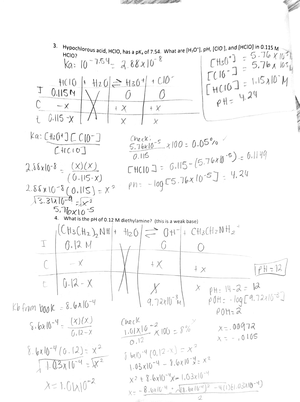 3. Hypochlorous acid, HClO, has a pKa of 7.54. What are [H3O+], pH, [ClO-], and [HClO] in 0.115 M
HClO?
Ka: 10^-7.54 = 2.88x10^-8
[H3O+] = 5.76 x 10^-5
[ClO-] = 5.76 x 10^-5
[HClO] = 1.15x10^-1 M
pH = 4.24
HClO + H2O ⇌ H3O+ + ClO-
I 0.115M 0 0
C -x +x +x
E 0.115-x x x
Ka: [H3O+][ClO-]
[HClO]
2.88x10^-8 = (x)(x)
(0.115-x)
2.88x10^-8 (0.115) = x²
5.76x10^-5
Check:
5.76x10^-5 x100 = 0.05%
0.115
[HClO] = 0.115-(5.76x10^-5) = 0.1149
pH = -log[5.76x10^-5] = 4.24
4. What is the pH of 0.12 M diethylamine? (this is a weak base)
(CH3CH2)2NH + H2O ⇌ OH- +
I 0.12 M 0 0
C -x +x +x
E 0.12-x x
9.72x10^-3
pH = 12
Kb from book = 8.6x10^-4
8.6x10^-4 = (x)(x)
0.12-x
8.6x10^-4 (0.12) = x²
√1.03x10^-4 = √x²
x = 1.01x10^-2
Check
1.01x10^-2 x100 = 8%
0.12
8.6x10^-4 (0.12-x) = x²
1.03x10^-4 - 8.6x10^-4 x = x²
pH = 14-2 = 12
pOH = -log[9.72x10^-3]
pOH = 2
x = .00972
x = -.0105